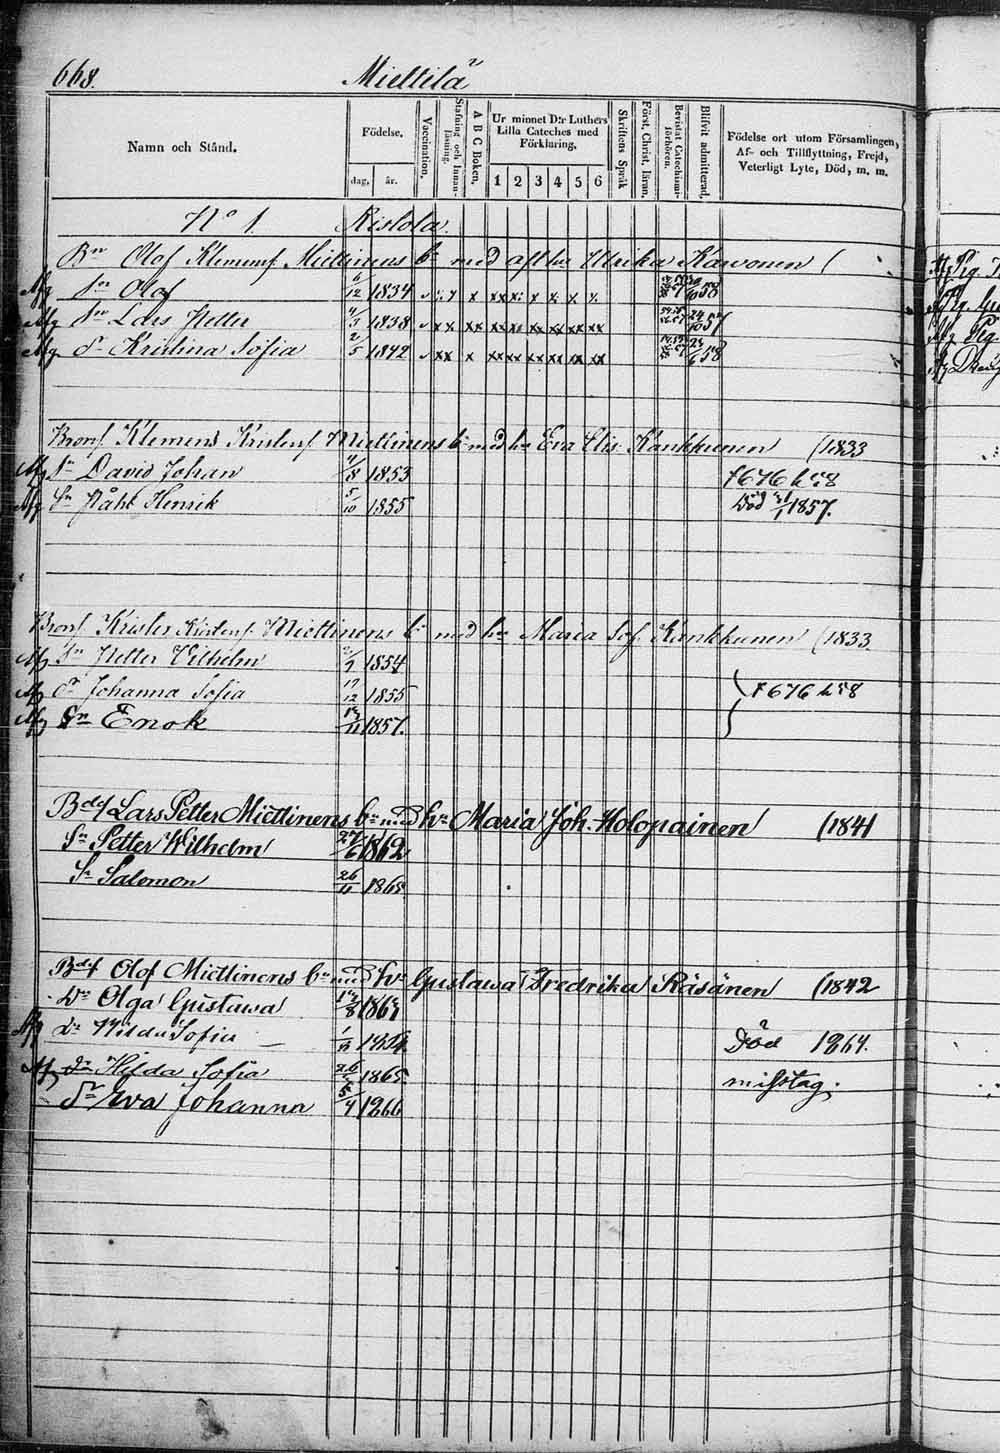 668.
Miettilä
Namn och Stånd.
Födelse,
dag,
år.
Vaccination.
Stafning och Innanläsning.
A B C Boken,
Ur minnet D:r Luthers Lilla Cateches med Förklaring,
1 2 3 4 5 6
Skriftens Språk
Först. Christ. läran.
Bevistat Catechismiförhören.
Blifvit admitterad.
Födelse ort utom Församlingen, Af- och Tillflyttning, Frejd, Veterligt Lyte, Död, m. m.
N:o 1. Ristola.
Bn Olof Klemensf Miettinens bn med aflhn Ulrika Karvonen (
Afg Sn Olof 6/12 1834
Afg Sn Lars Petter 4/3 1838
Afg Dr Kristina Sofia 2/5 1842
Bronf Klemens Kristerf Miettinens bn med hn Eva Elis. Kankkunen (1833
Afg Sn David Johan 11/8 1853 f 676 h 58
Afg Sn Påhl Henrik 5/10 1855 Död 31/1 1857.
Bronf Krister Kristerf. Miettinens bn med hn Maria Sof. Kankkunen (1833
Afg Sn Petter Vilhelm 2/7 1854
Afg Dr Johanna Sofia 17/12 1855 f 676 h 58
Afg Sn Enok 13/11 1857.
Bdf Lars Petter Miettinens bn med hn Maria Joh. Holopainen (1841
Sn Petter Wilhelm 27/6 1862
Sn Salomon 26/11 1865
Bdf Olof Miettinens bn med hn Gustawa Fredrika Räsänen (1842
Dr Olga Gustawa 12/8 1863
Afg Dr Hilda Sofia 1864 Död 1864.
Afg Dr Hilda Sofia 26 1865 misstag.
Dr Eva Johanna 5/4 1866